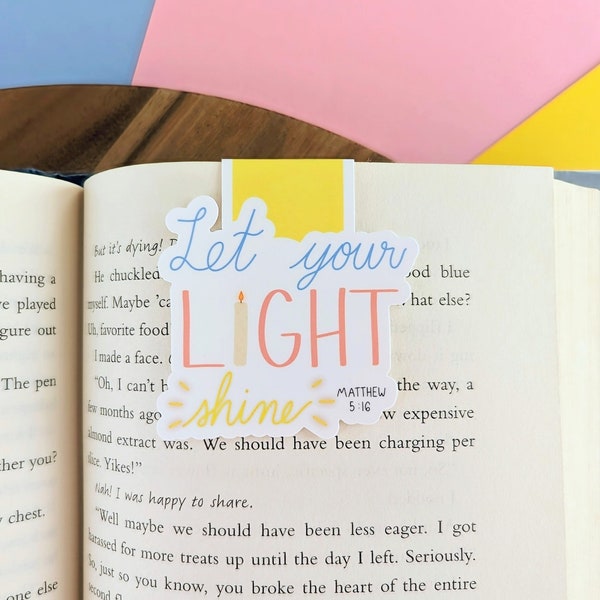 having a
played
gure out
The pen
her you?
chest.
one else
Let your
LIGHT
shine
MATTHEW
5:16
But it's dying!
He chuckled ood blue
myself. Maybe 'ca hat else?
Uh, favorite food
I made a face.
"Oh, I can't the way, a
few months ago w expensive
almond extract was. We should have been charging per
slice. Yikes!"
Nah! I was happy to share.
"Well maybe we should have been less eager. I got
harassed for more treats up until the day I left. Seriously.
So, just so you know, you broke the heart of the entire
second